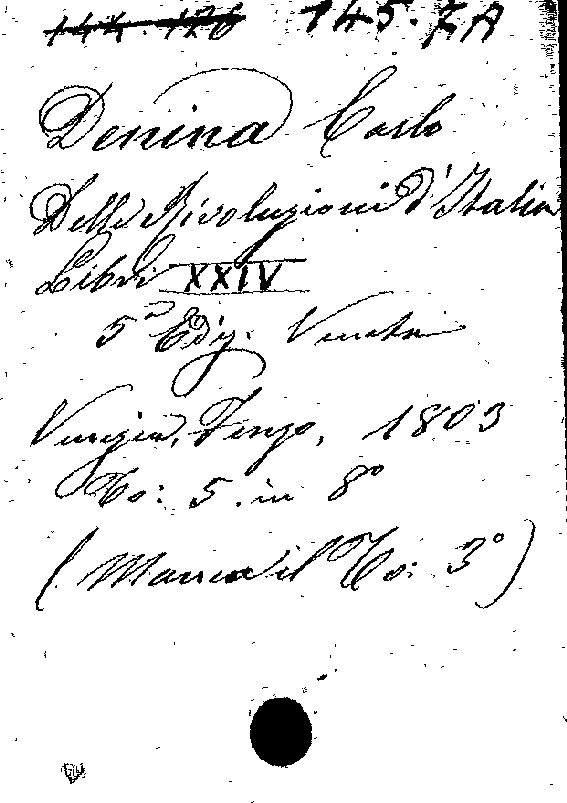 144. 126 145. 7A
Denina Carlo
Delle Rivoluzioni d'Italia
Libri XXIV
5ª Ediz. Veneta
Venezia, 1803
To: 5. in 8º
(Manca il To: 3º)